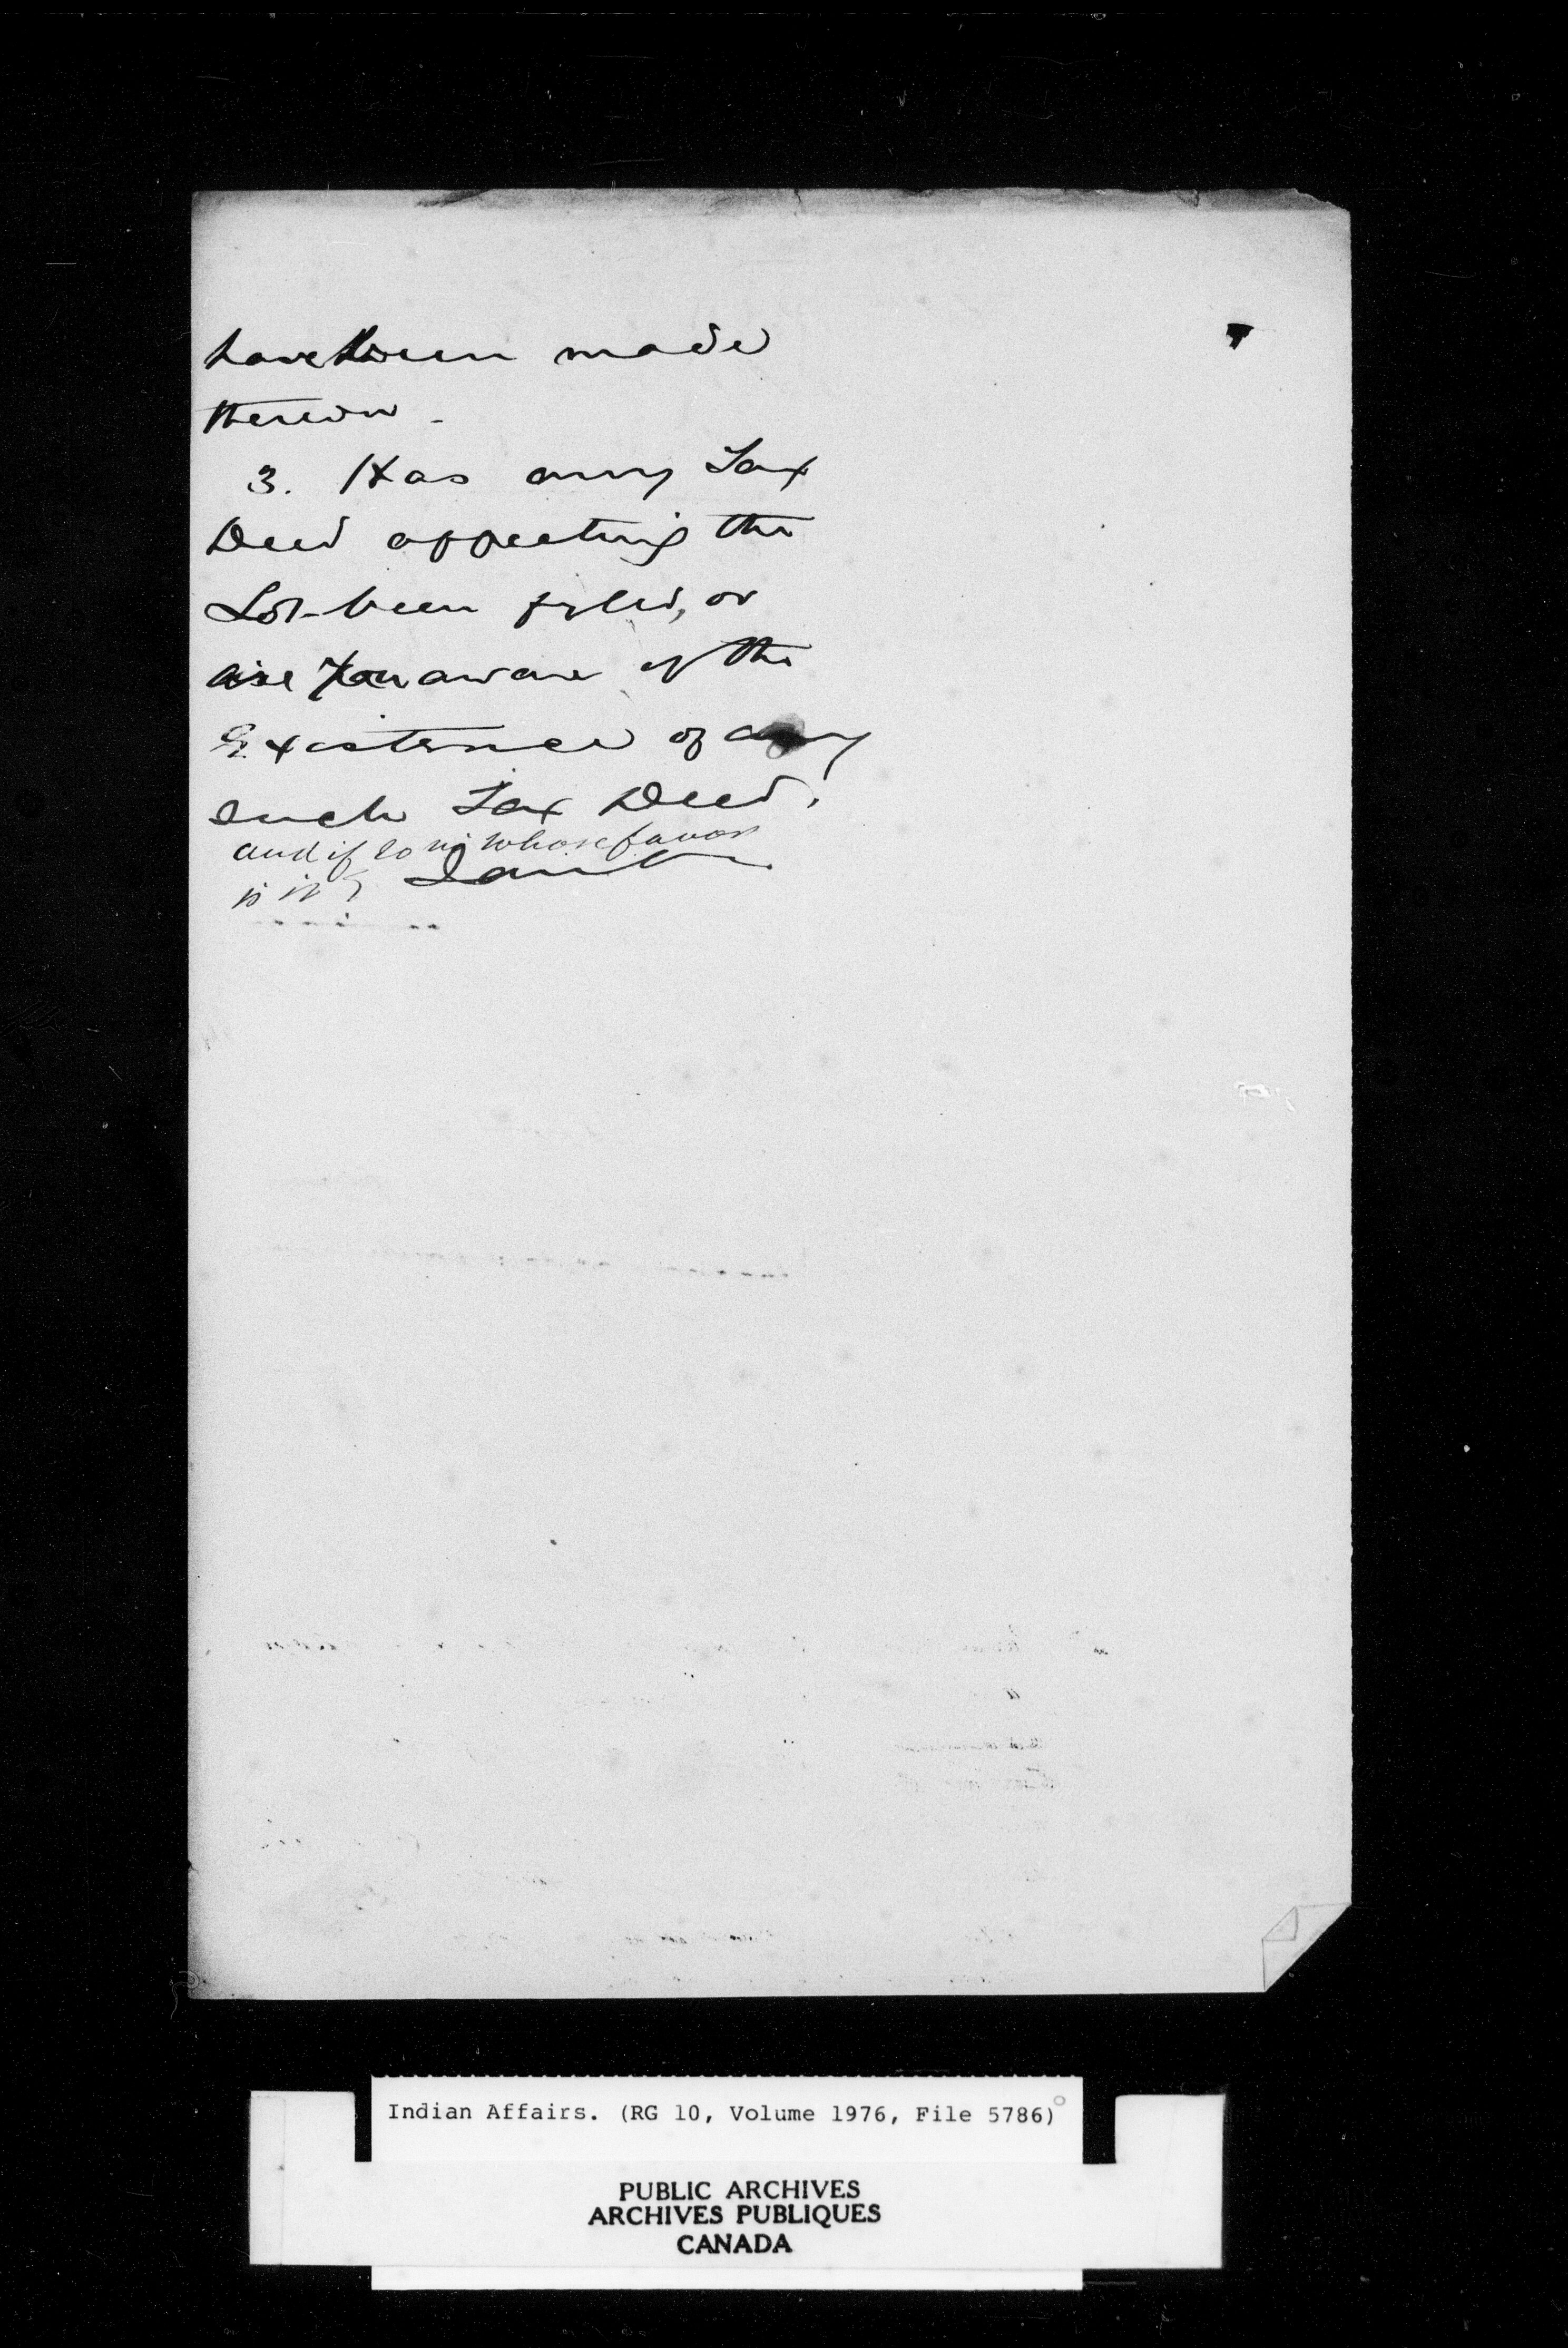 have been made
thereon -
3. Has any Tax
Deed affecting the
Lot been fyled, or
are you aware of the
Existence of any
such Tax Deed,
and if so in whose favor
is it?
Indian Affairs. (RG 10, Volume 1976, File 5786)
PUBLIC ARCHIVES
ARCHIVES PUBLIQUES
CANADA